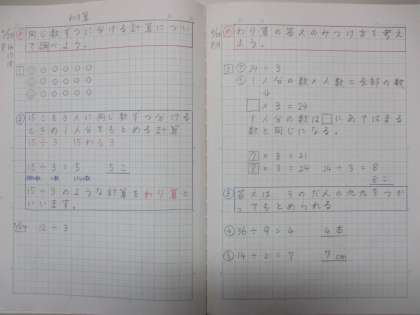 わり算
同じ数ずつに分ける計算につい
て調べよう。
1
15こを3人に同じ数ずつ分ける
ときの1人分をもとめる計算
15÷3 15わる3
15÷3=5 5こ
15÷3のような計算をわり算と
いいます。
12÷3
わり算の答えのみつけ方を考え
よう。
24÷3
1人分の数×人数=全部の数
□×3=24
1人分の数は□にあてはまる
数と同じになる。
7×3=21
8×3=24 24÷3=8
8こ
答えは、3のだんの九九をつか
ってもとめられる
④ 36÷9=4 4本
⑤ 14÷2=7 7cm